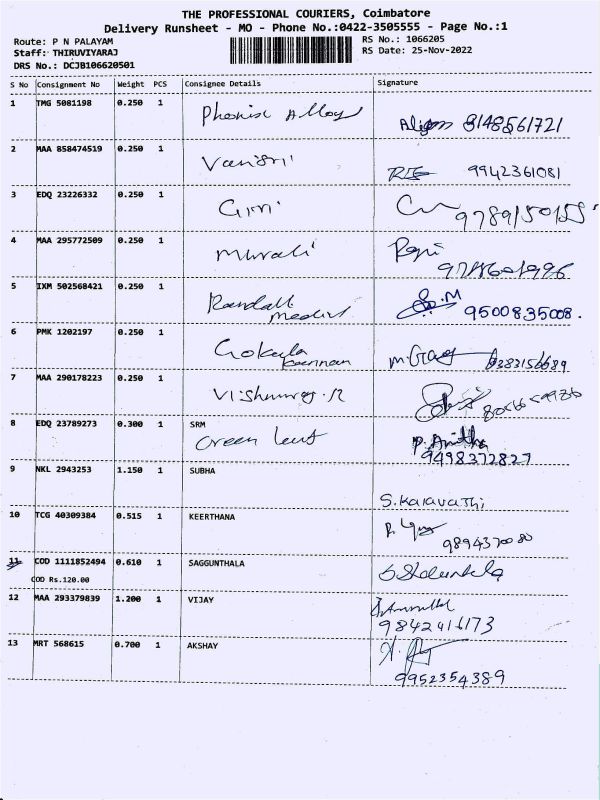 THE PROFESSIONAL COURIERS, Coimbatore
Delivery Runsheet - MO - Phone No.:0422-3505555 - Page No.:1
Route: P N PALAYAM
Staff: THIRUVIYARAJ
DRS No.: DCJB106620501
RS No.: 1066205
RS Date: 25-Nov-2022
S No Consignment No Weight PCS Consignee Details Signature
1 TMG 5081198 0.250 1 Phoenix Alloy 8148561721
2 MAA 858474519 0.250 1 Vanisri 9942361081
3 EDQ 23226332 0.250 1 Giri
4 MAA 295772509 0.250 1 Murali
5 IXM 502568421 0.250 1 9500835008.
6 PMK 1202197 0.250 1 Gokula kannan
7 MAA 290178223 0.250 1
8 EDQ 23789273 0.300 1 SRM
Green leaf P. Anitha
9498372827
9 NKL 2943253 1.150 1 SUBHA
S. Kalavathi
10 TCG 40309384 0.515 1 KEERTHANA
9894370080
11 COD 1111852494 0.610 1 SAGGUNTHALA
COD Rs.120.00
12 MAA 293379839 1.200 1 VIJAY
9842416173
13 MRT 568615 0.700 1 AKSHAY
9952354389